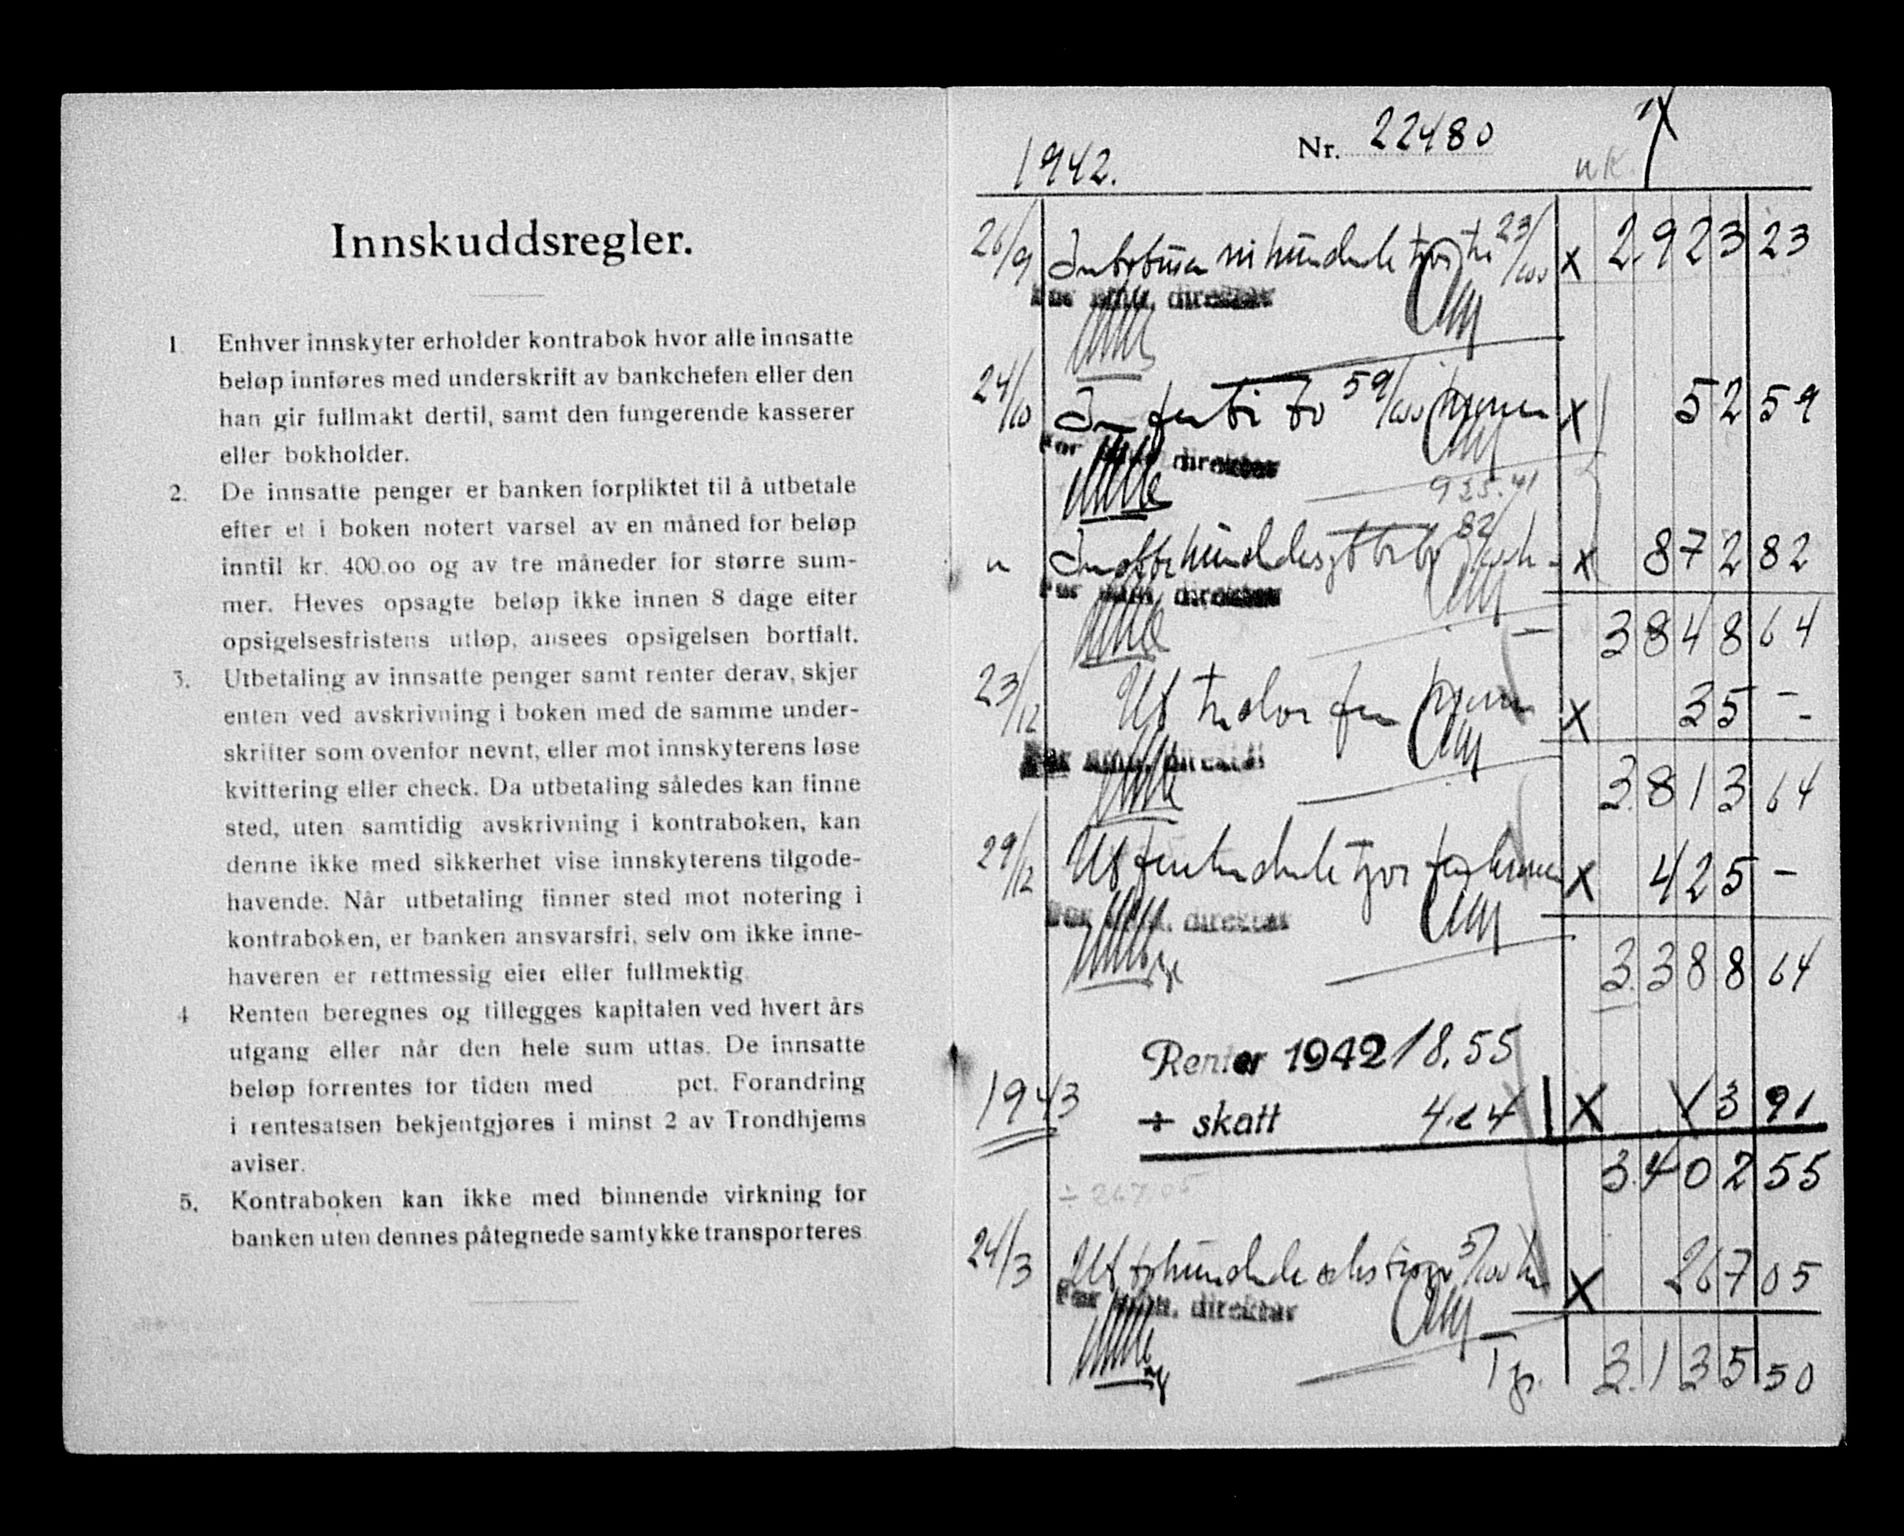 Innskuddsregler.
1. Enhver innskyter erholder kontrabok hvor alle innsatte
beløp innføres med underskrift av bankchefen eller den
han gir fullmakt dertil, samt den fungerende kasserer
eller bokholder.
2. De innsatte penger er banken forpliktet til å utbetale
efter et i boken notert varsel av en måned for beløp
inntil kr. 400.00 og av tre måneder for større sum-
mer. Heves opsagte beløp ikke innen 8 dage efter
opsigelsesfristens utløp, ansees opsigelsen bortfalt.
3. Utbetaling av innsatte penger samt renter derav, skjer
enten ved avskrivning i boken med de samme under-
skrifter som ovenfor nevnt, eller mot innskyterens løse
kvittering eller check. Da utbetaling således kan finne
sted, uten samtidig avskrivning i kontraboken, kan
denne ikke med sikkerhet vise innskyterens tilgode-
havende. Når utbetaling finner sted mot notering i
kontraboken, er banken ansvarsfri, selv om ikke inne-
haveren er rettmessig eier eller fullmektig.
4 Renten beregnes og tillegges kapitalen ved hvert års
utgang eller når den hele sum uttas. De innsatte
beløp forrentes for tiden med pct. Forandring
i rentesatsen bekjentgjøres i minst 2 av Trondhjems
aviser.
5. Kontraboken kan ikke med binnende virkning for
banken uten dennes påtegnede samtykke transporteres
1942. Nr. 22480
26/9 23/100 x 2.923 23
For adm. direktør
24/10 In femti to 59/100 kroner x 52 59
For adm. direktør
925.41
" 82/100 x 872 82
For adm. direktør
3848 64
23/12 Ut tredve fem kroner x 35 -
For adm. direktør
3.813 64
29/12 Ut firehundrede tyve fem kroner x 425 -
For adm. direktør
3.388 64
Renter 1942 18.55
1943 ÷ skatt 4.64 x 13 91
3.402 55
÷ 267.05
24/3 Ut tohundrede seksti syv 5/100 kr x 267 05
For adm. direktør
3.135 50